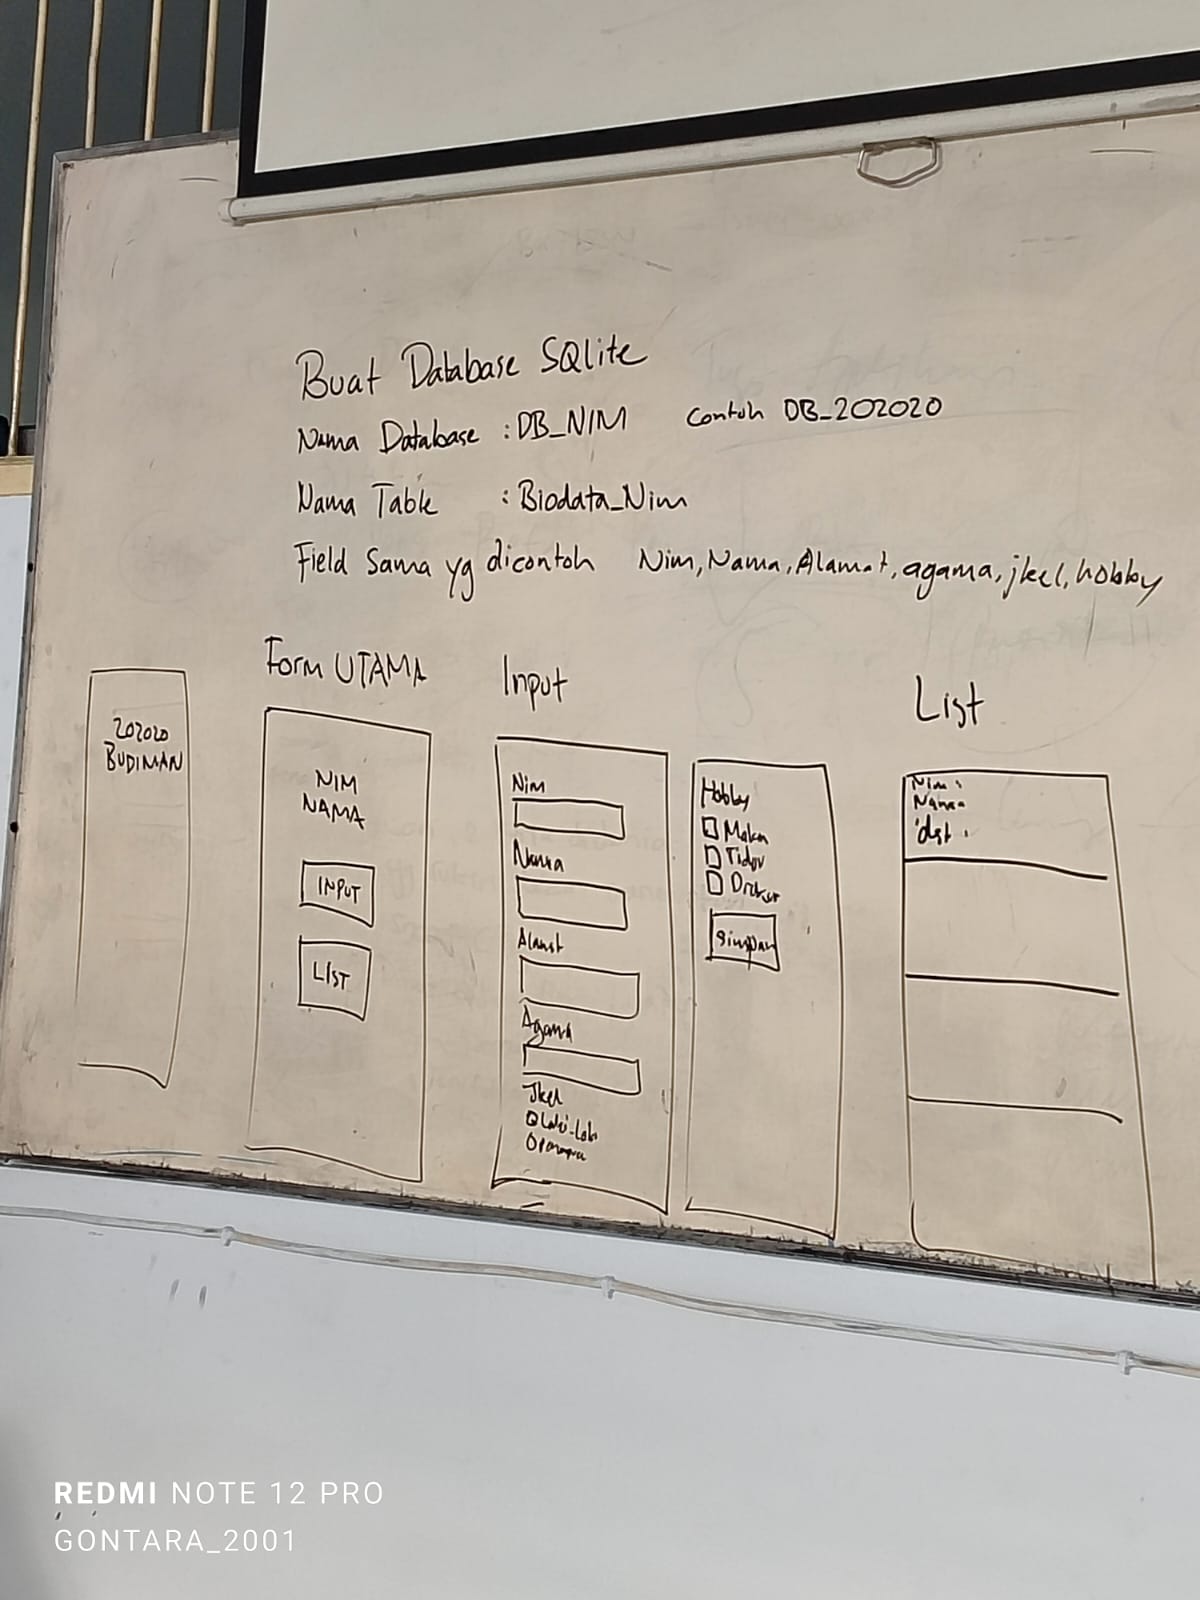 Buat Database SQlite
Nama Database : DB_NIM Contoh DB_202020
Nama Table : Biodata_Nim
Field Sama yg dicontoh Nim, Nama, Alamat, agama, jkel, hobby
202020
BUDIMAN
Form UTAMA
NIM
NAMA
INPUT
LIST
Input
Nim
Nama
Alamat
Agama
Jkel
Laki-Laki
Hobby
Makan
Tidur
Simpan
List
Nim :
Nama
dst :
REDMI NOTE 12 PRO
GONTARA_2001